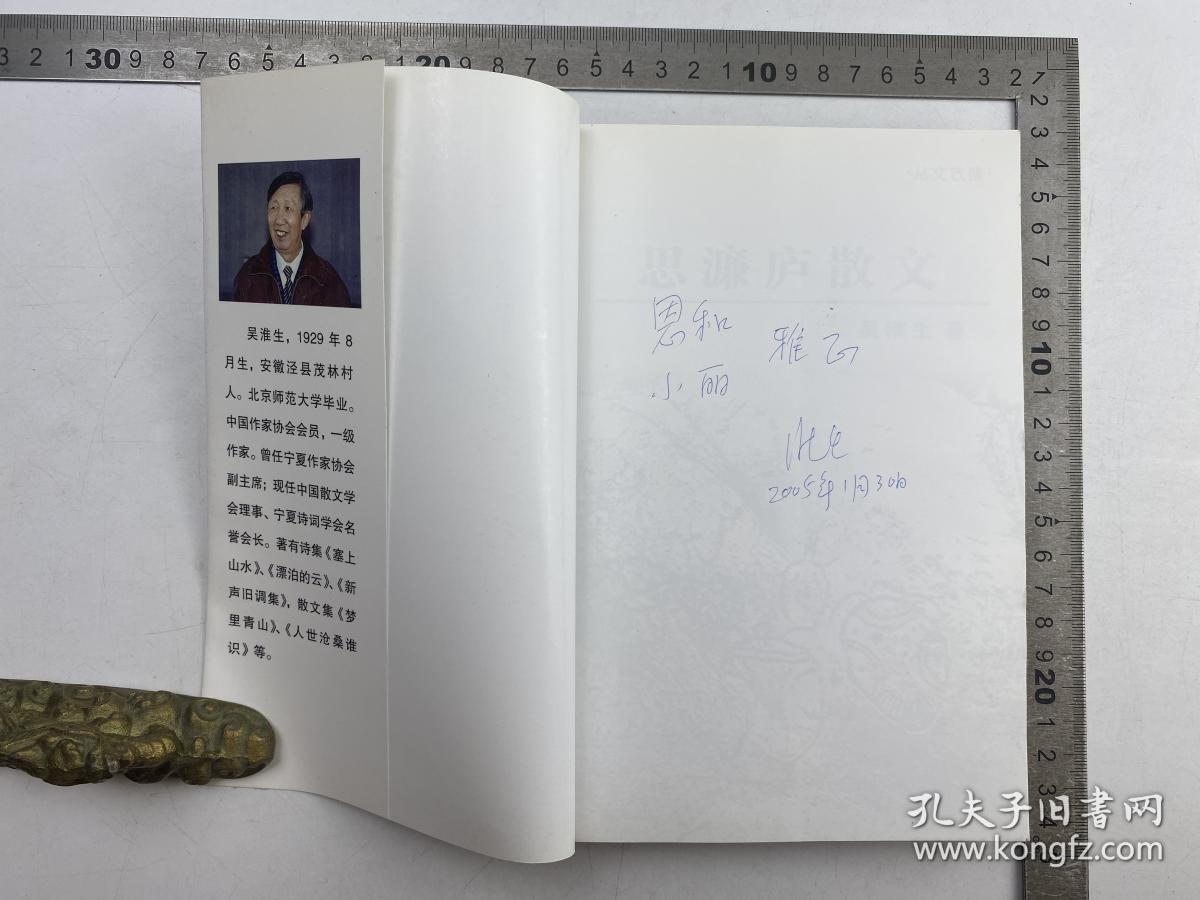 3 2 1 30 9 8 7 6 5 4 3 2 1 20 9 8 7 6 5 4 3 2 1 10 9 8 7 6 5 4 3 2 1
吴淮生，1929年8
月生，安徽泾县茂林村
人。北京师范大学毕业。
中国作家协会会员，一级
作家。曾任宁夏作家协会
副主席；现任中国散文学
会理事、宁夏诗词学会名
誉会长。著有诗集《塞上
山水》、《漂泊的云》、《新
声旧调集》，散文集《梦
里青山》、《人世沧桑谁
识》等。
思濂庐散文
恩和
小丽
雅正
淮生
2005年1月30日
2 3 4 5 6 7 8 9 10 1 2 3 4 5 6 7 8 9 20 1 2 3 4
孔夫子旧书网
www.kongfz.com